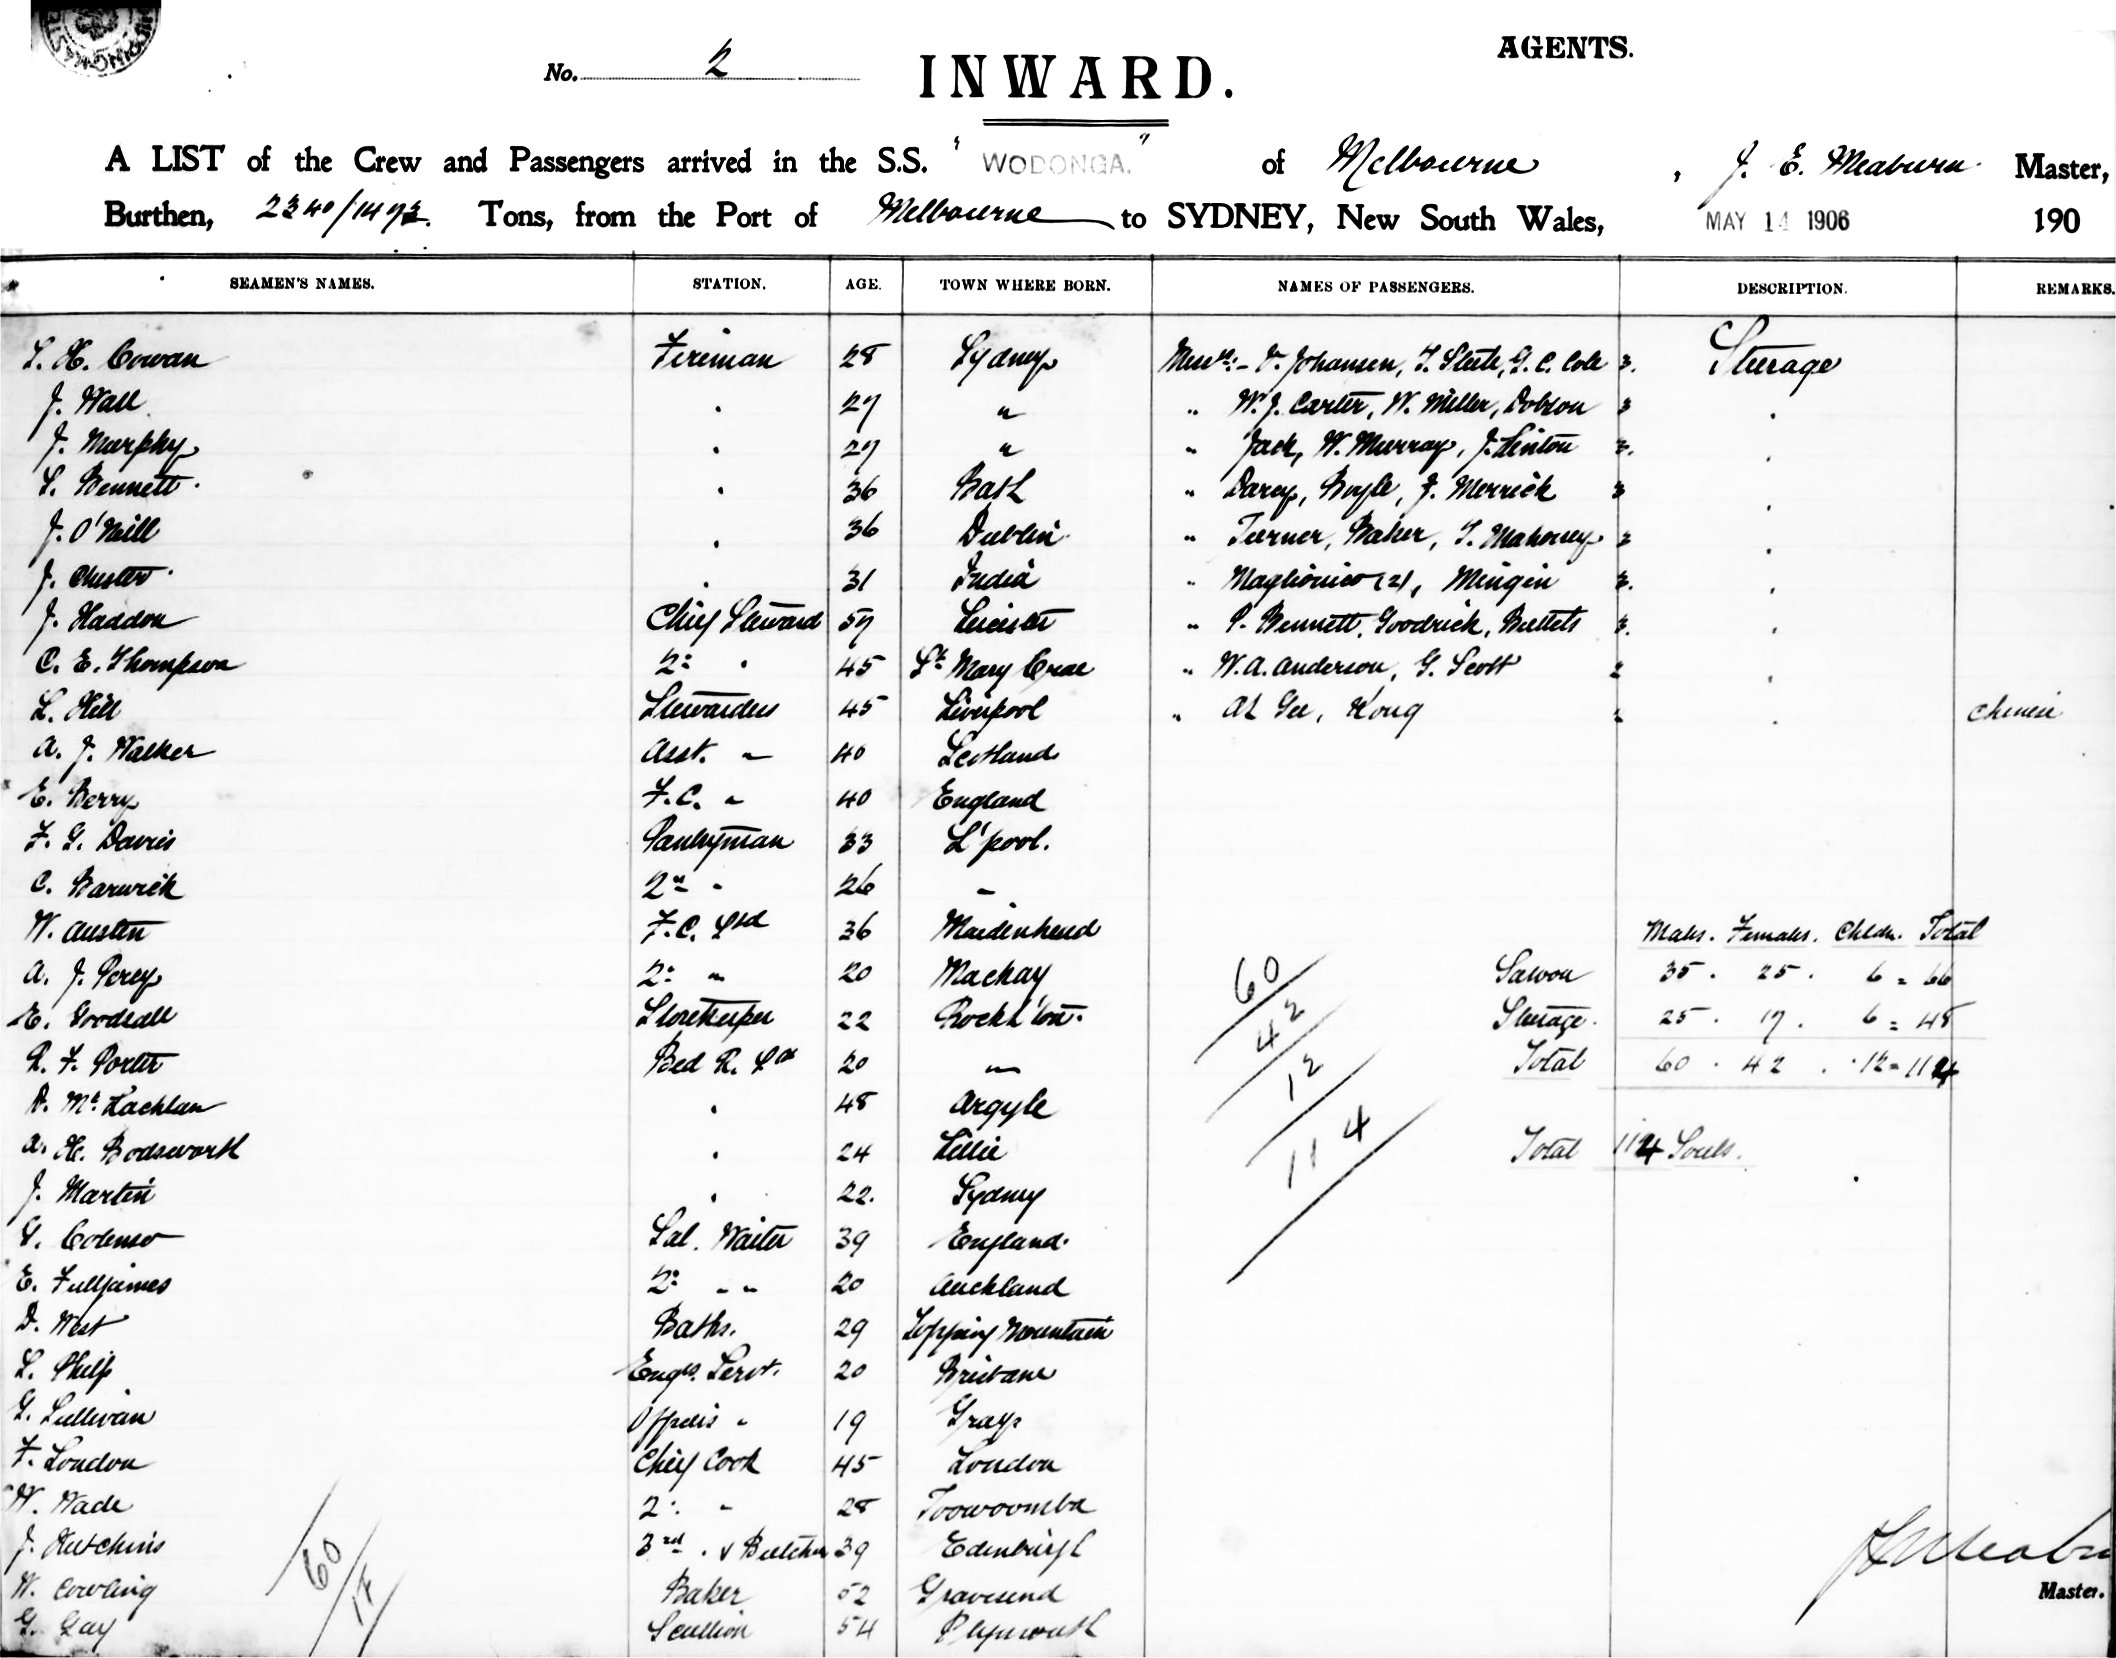 AGENTS.
No. 2 INWARD.
A LIST of the Crew and Passengers arrived in the S.S. "WODONGA." of Melbourne, J. E. Meaburn Master,
Burthen, 2340/1473. Tons, from the Port of Melbourne to SYDNEY, New South Wales, MAY 14 1906 190
SEAMEN'S NAMES. STATION. AGE. TOWN WHERE BORN. NAMES OF PASSENGERS. DESCRIPTION. REMARKS.
S. H. Cowan Fireman 28 Sydney Messrs:- V. Johansen, T. Steele, G. C. Cole 3. Steerage
J. Wall " 27 " " W. J. Carter, W. Miller, Dobson 3 "
J. Murphy " 27 " " Jack, W. Murray, J. Linton 3. "
S. Bennett " 36 Bath " Darcy, Boyle, J. Merrick 3 "
J. O'Neill " 36 Dublin " Turner, Baker, T. Mahoney 3 "
J. Chester " 31 India " Maglionico (2), Mingin 3. "
J. Haddon Chief Steward 57 Leicester " P. Bennett, Goodrick, 3. "
C. E. Thompson 2: " 45 St. Mary Crae " W. A. Anderson, G. Scott 2 "
L. Hill Stewardess 45 Liverpool " Ah Gee, Kong 2 " Chinese
A. J. Walker Asst. " 40 Scotland
E. Berry F.C. " 40 England
F. G. Davies Pantryman 33 L'pool.
C. Barwick 2nd " 26 "
W. Austen F.C. Std 36 Maidenhead Males. Females. Chldn. Total
A. J. Percy 2: " 20 Mackay 60 Saloon 35 . 25 . 6 = 66
E. Goodsall Storekeeper 22 Rockh'ton. 42 Steerage. 25 . 17 . 6 = 48
R. F. Porter Bed R. Std 20 " 12 Total 60 . 42 . 12 = 114
D. McLachlan " 48 Argyle
A. H. Bodsworth " 24 Lillie 114 Total 114 Souls.
J. Martin " 22. Sydney
G. Colenso Sal. Waiter 39 England.
E. Fulljames 2: " " 20 Auckland
D. West Baths. 29 Topping Mountain
L. Philp Engrs. Servt. 20 Brisbane
G. Sullivan Officers " 19 Grays
F. London Chief Cook 45 London
W. Wade 2: " 28 Toowoomba
J. Hutchins 3rd " & Butcher 39 Edinburgh
W. Cowling 60 Baker 52 Gravesend
Master.
G. Gay 18 Scullion 54 Plymouth